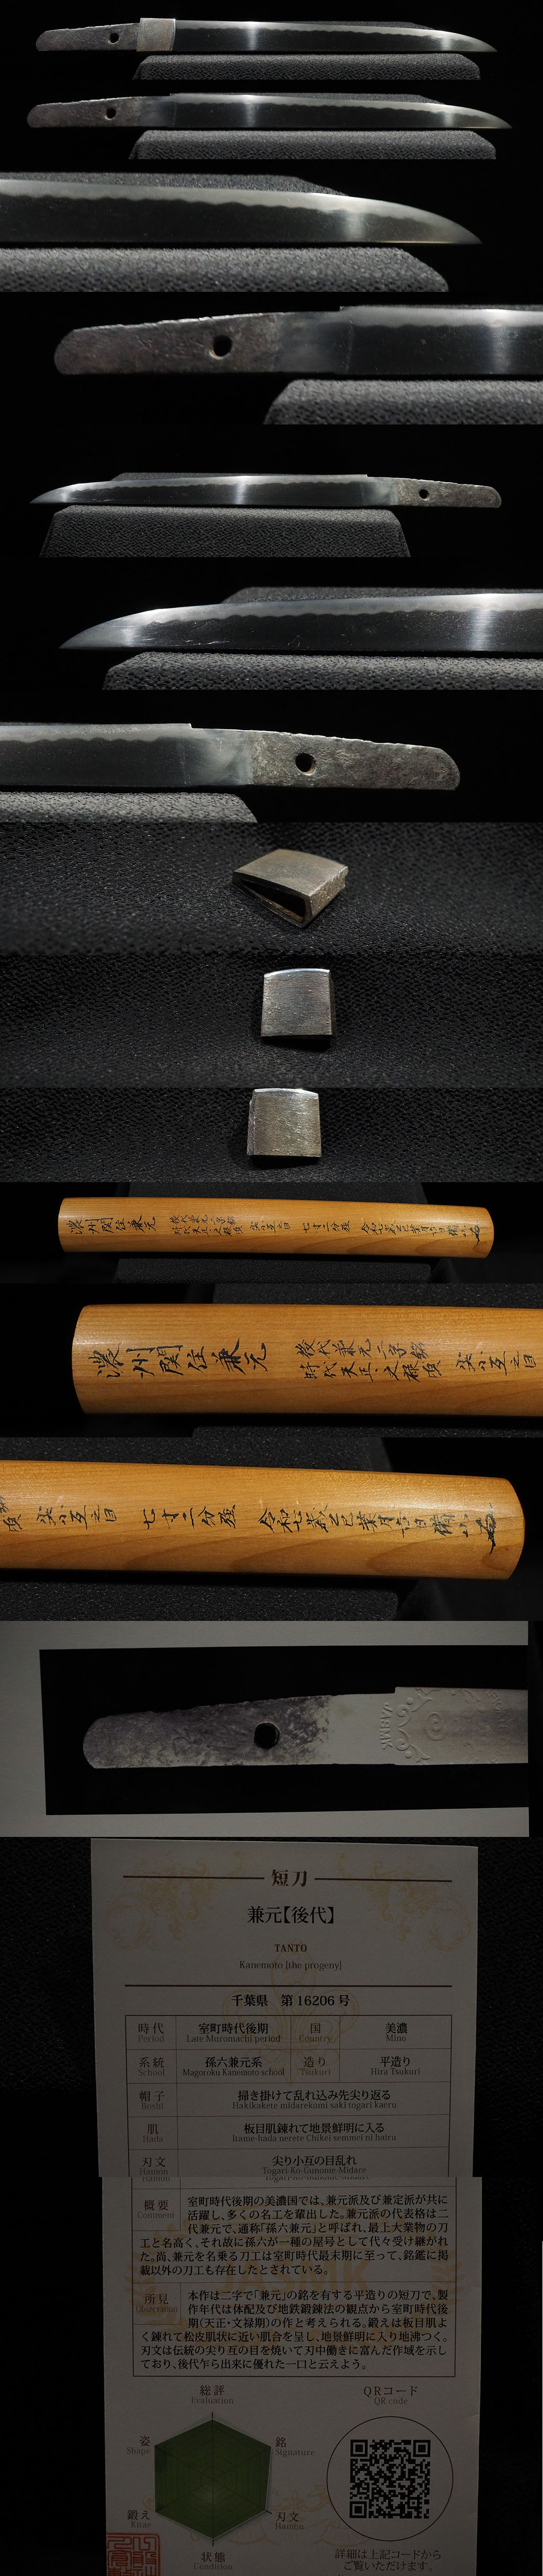 濃州関住兼元
後代兼元二字銘
時代天正、文禄頃
尖小互之目
七寸二分強
令和七歳乙巳葉月
濃州関住兼元
後代兼元二字銘
時代天正、文禄頃
尖小互之目
尖小互之目
七寸二分強
令和七歳乙巳葉月
短刀
兼元【後代】
TANTO
Kanemoto [the progeny]
千葉県 第 16206 号
時代 室町時代後期 国 美濃
Period Late Muromachi period Country Mino
系統 孫六兼元系 造り 平造り
School Magoroku Kanemoto school Tsukuri Hira Tsukuri
帽子 掃き掛けて乱れ込み先尖り返る
Boshi Hakikakete midarekomi saki togari kaeru
肌 板目肌錬れて地景鮮明に入る
Hada Itame-hada nerete Chikei semmei ni hairu
刃文 尖り小互の目乱れ
Hamon Togari-Ko-Gunome-Midare
概要
Comment
室町時代後期の美濃国では、兼元派及び兼定派が共に
活躍し、多くの名工を輩出した。兼元派の代表格は二
代兼元で、通称「孫六兼元」と呼ばれ、最上大業物の刀
工と名高く、それ故に孫六が一種の屋号として代々受け継がれ
た。尚、兼元を名乗る刀工は室町時代最末期に至って、銘鑑に掲
載以外の刀工も存在したとされている。
所見
Observation
本作は二字で「兼元」の銘を有す平造りの短刀で、製
作年代は体配及び地鉄鍛錬法の観点から室町時代後
期(天正・文禄期)の作と考えられる。鍛えは板目肌よ
く錬れて松皮肌状に近い肌合を呈し、地景鮮明に入り地沸つく。
刃文は伝統の尖り互の目を焼いて刃中働きに富んだ作域を示し
ており、後代乍ら出来に優れた一口と云えよう。
総評
Evaluation
QRコード
QR code
姿
Shape
銘
Signature
鍛え
Kitae
刃文
Hamon
状態
Condition
詳細は上記コードから
ご覧いただけます。